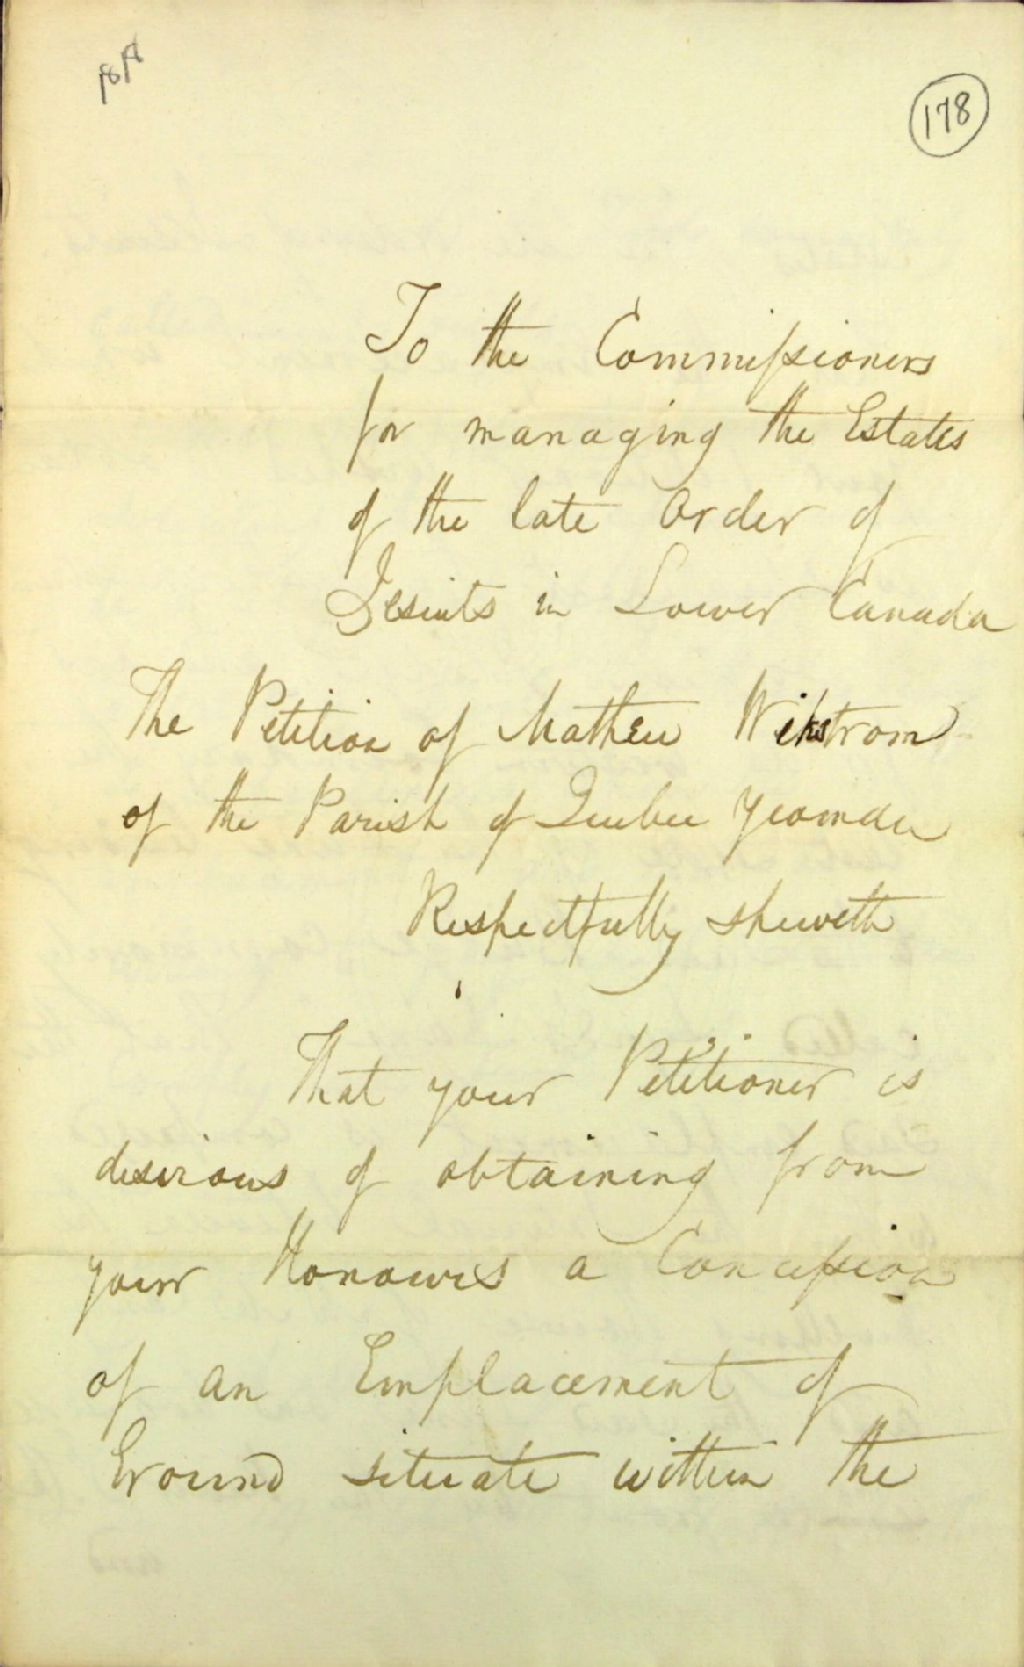 178
To the Commissioners
for managing the Estates
of the late Order of
Jesuits in Lower Canada
The Petition of Mathew Wikstrom
of the Parish of Quebec Yeoman
Respectfully sheweth
That your Petitioner is
desirous of obtaining from
your Honours a Concession
of an Emplacement of
Ground situate within the